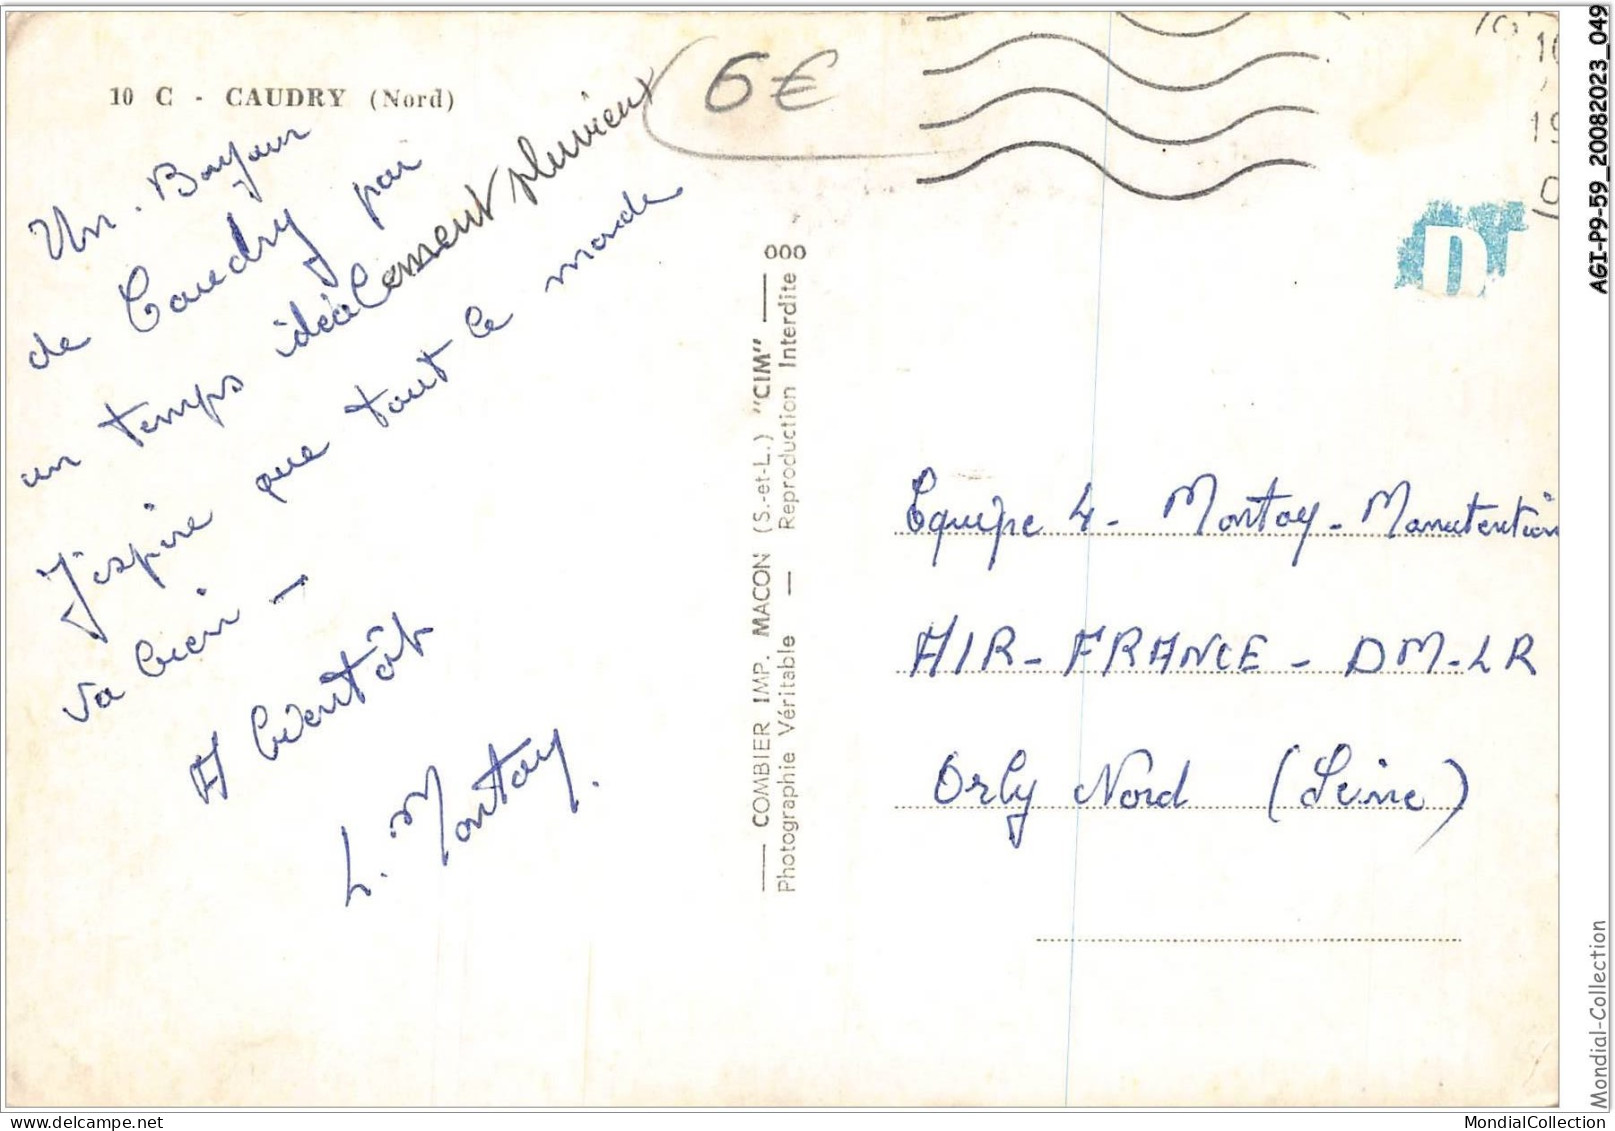 10 C - CAUDRY (Nord)
6€
Un Bonjour
de Caudry par
un temps idéalement pluvieux
J'espère que tout le monde
va bien -
A bientôt
L. Montay.
000
COMBIER IMP. MACON (S.-et-L.) "CIM"
Photographie Véritable — Reproduction Interdite
D
Equipe 4 - Montay - Manutention
AIR-FRANCE - DM-LR
Orly Nord (Seine)
AGI-P9-59_20082023_049
Mondial-Collection
MondialCollection